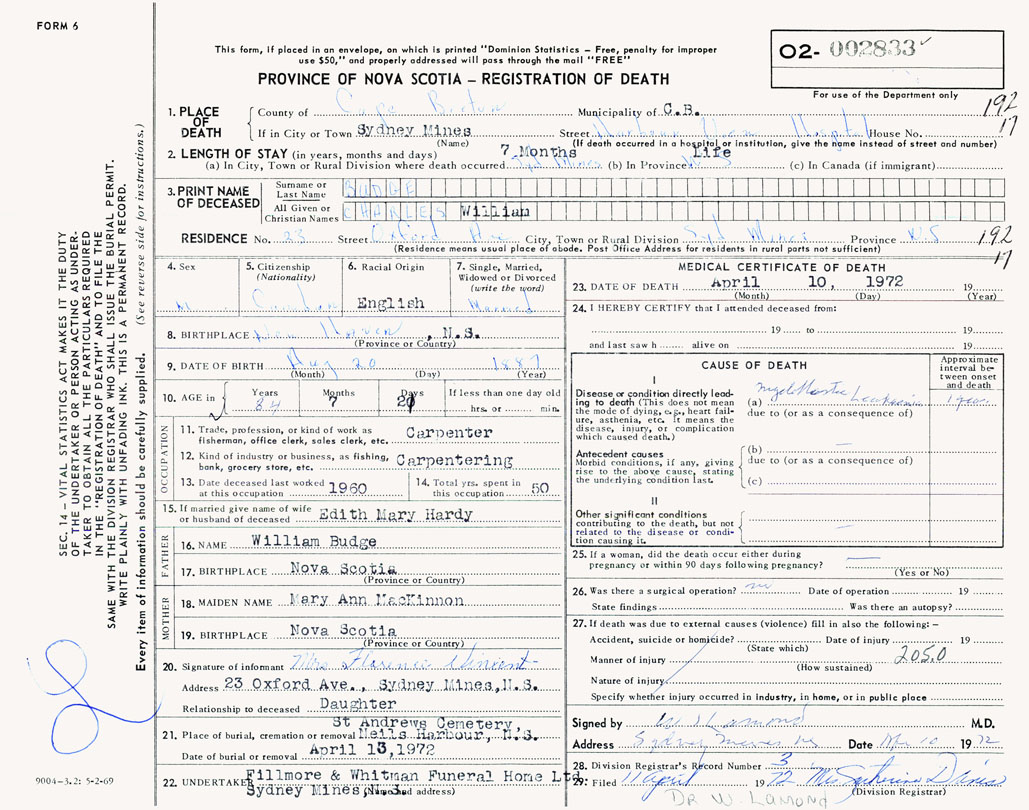 FORM 6
This form, if placed in an envelope, on which is printed "Dominion Statistics – Free, penalty for improper
use $50," and properly addressed will pass through the mail "FREE"
PROVINCE OF NOVA SCOTIA – REGISTRATION OF DEATH
O2- 002833
For use of the Department only
192
17
1. PLACE OF DEATH
County of Cape Breton Municipality of C.B.
If in City or Town Sydney Mines Street Harbour View Hospital House No.
(Name) (If death occurred in a hospital or institution, give the name instead of street and number)
2. LENGTH OF STAY (in years, months and days) 7 Months Life
(a) In City, Town or Rural Division where death occurred Syd Mines (b) In Province N S (c) In Canada (if immigrant)
3. PRINT NAME OF DECEASED
Surname or Last Name BUDGE
All Given or Christian Names CHARLES William
RESIDENCE No. 23 Street Oxford Ave City, Town or Rural Division Syd Mines Province N.S
(Residence means usual place of abode. Post Office Address for residents in rural parts not sufficient)
192
17
4. Sex M
5. Citizenship (Nationality) Canadian
6. Racial Origin English
7. Single, Married, Widowed or Divorced (write the word) Married
8. BIRTHPLACE New Haven, N.S.
(Province or Country)
9. DATE OF BIRTH Aug 20 1887
(Month) (Day) (Year)
10. AGE in Years 84 Months 7 Days If less than one day old hrs. or min.
OCCUPATION
11. Trade, profession, or kind of work as fisherman, office clerk, sales clerk, etc. Carpenter
12. Kind of industry or business, as fishing, bank, grocery store, etc. Carpentering
13. Date deceased last worked at this occupation 1960
14. Total yrs. spent in this occupation 50
15. If married give name of wife or husband of deceased Edith Mary Hardy
FATHER
16. NAME William Budge
17. BIRTHPLACE Nova Scotia
(Province or Country)
MOTHER
18. MAIDEN NAME Mary Ann MacKinnon
19. BIRTHPLACE Nova Scotia
(Province or Country)
20. Signature of informant Mrs. Florence Vincent
Address 23 Oxford Ave., Sydney Mines,N.S.
Relationship to deceased Daughter
St Andrews Cemetery,
21. Place of burial, cremation or removal Neils Harbour, N.S.
Date of burial or removal April 13,1972
22. UNDERTAKER Fillmore & Whitman Funeral Home Ltd
Sydney Mines,N.S.
(Name and address)
MEDICAL CERTIFICATE OF DEATH
23. DATE OF DEATH April 10, 1972 19
(Month) (Day) (Year)
24. I HEREBY CERTIFY that I attended deceased from:
19 to 19
and last saw h alive on 19
CAUSE OF DEATH
Approximate interval between onset and death
I
Disease or condition directly leading to death (This does not mean the mode of dying, e.g., heart failure, asthenia, etc. It means the disease, injury, or complication which caused death.)
(a) Myeloblastic Leukemia 1 year
due to (or as a consequence of)
Antecedent causes
Morbid conditions, if any, giving rise to the above cause, stating the underlying condition last.
(b) —
due to (or as a consequence of)
(c)
II
Other significant conditions contributing to the death, but not related to the disease or condition causing it. —
25. If a woman, did the death occur either during pregnancy or within 90 days following pregnancy? —
(Yes or No)
26. Was there a surgical operation? no Date of operation 19
State findings Was there an autopsy?
27. If death was due to external causes (violence) fill in also the following: –
Accident, suicide or homicide? Date of injury 19
(State which)
Manner of injury 205.0
(How sustained)
Nature of injury
Specify whether injury occurred in industry, in home, or in public place
Signed by W J Lamond M.D.
Address Sydney Mines NS Date Apr 10 1972
28. Division Registrar's Record Number 3
29. Filed 11 April 1972 Mrs Catherine Davis
(Division Registrar)
DR W. LAMOND
SEC. 14 – VITAL STATISTICS ACT MAKES IT THE DUTY
OF THE UNDERTAKER OR PERSON ACTING AS UNDER-
TAKER TO OBTAIN ALL THE PARTICULARS REQUIRED
IN THE "REGISTRATION OF DEATH" AND TO FILE THE
SAME WITH THE DIVISION REGISTRAR WHO SHALL ISSUE THE BURIAL PERMIT.
WRITE PLAINLY WITH UNFADING INK. THIS IS A PERMANENT RECORD.
Every item of information should be carefully supplied. (See reverse side for instructions.)
9004-3.2: 5-2-69